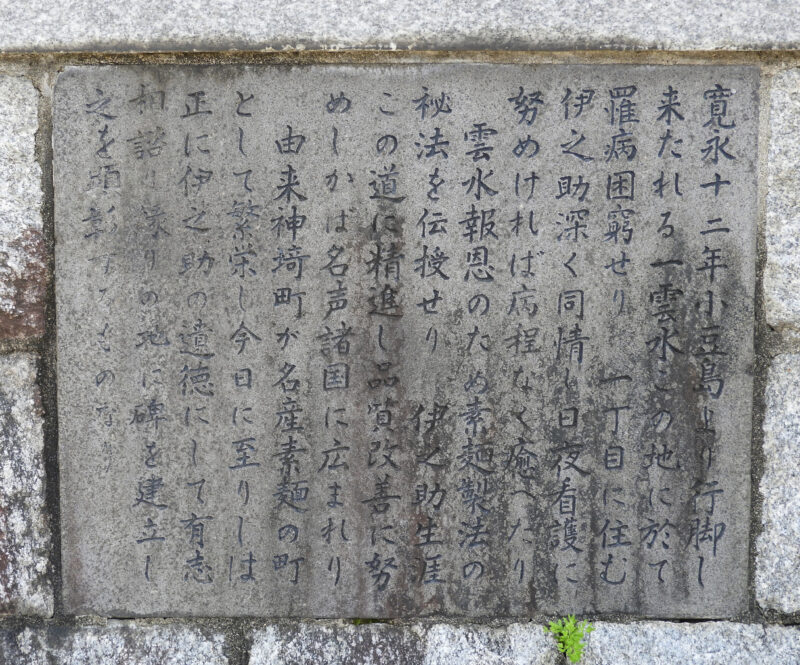 寛永十二年小豆島より行脚し
来たれる一雲水この地に於て
罹病困窮せり　一丁目に住む
伊之助深く同情し日夜看護に
努めければ病程なく癒へたり
雲水報恩のため素麺製法の
秘法を伝授せり　伊之助生涯
この道に精進し品質改善に努
めしかば名声諸国に広まれり
由来神埼町が名産素麺の町
として繁栄し今日に至りしは
正に伊之助の遺徳にして有志
相諮りゆかりの地に碑を建立し
之を顕彰するものなり